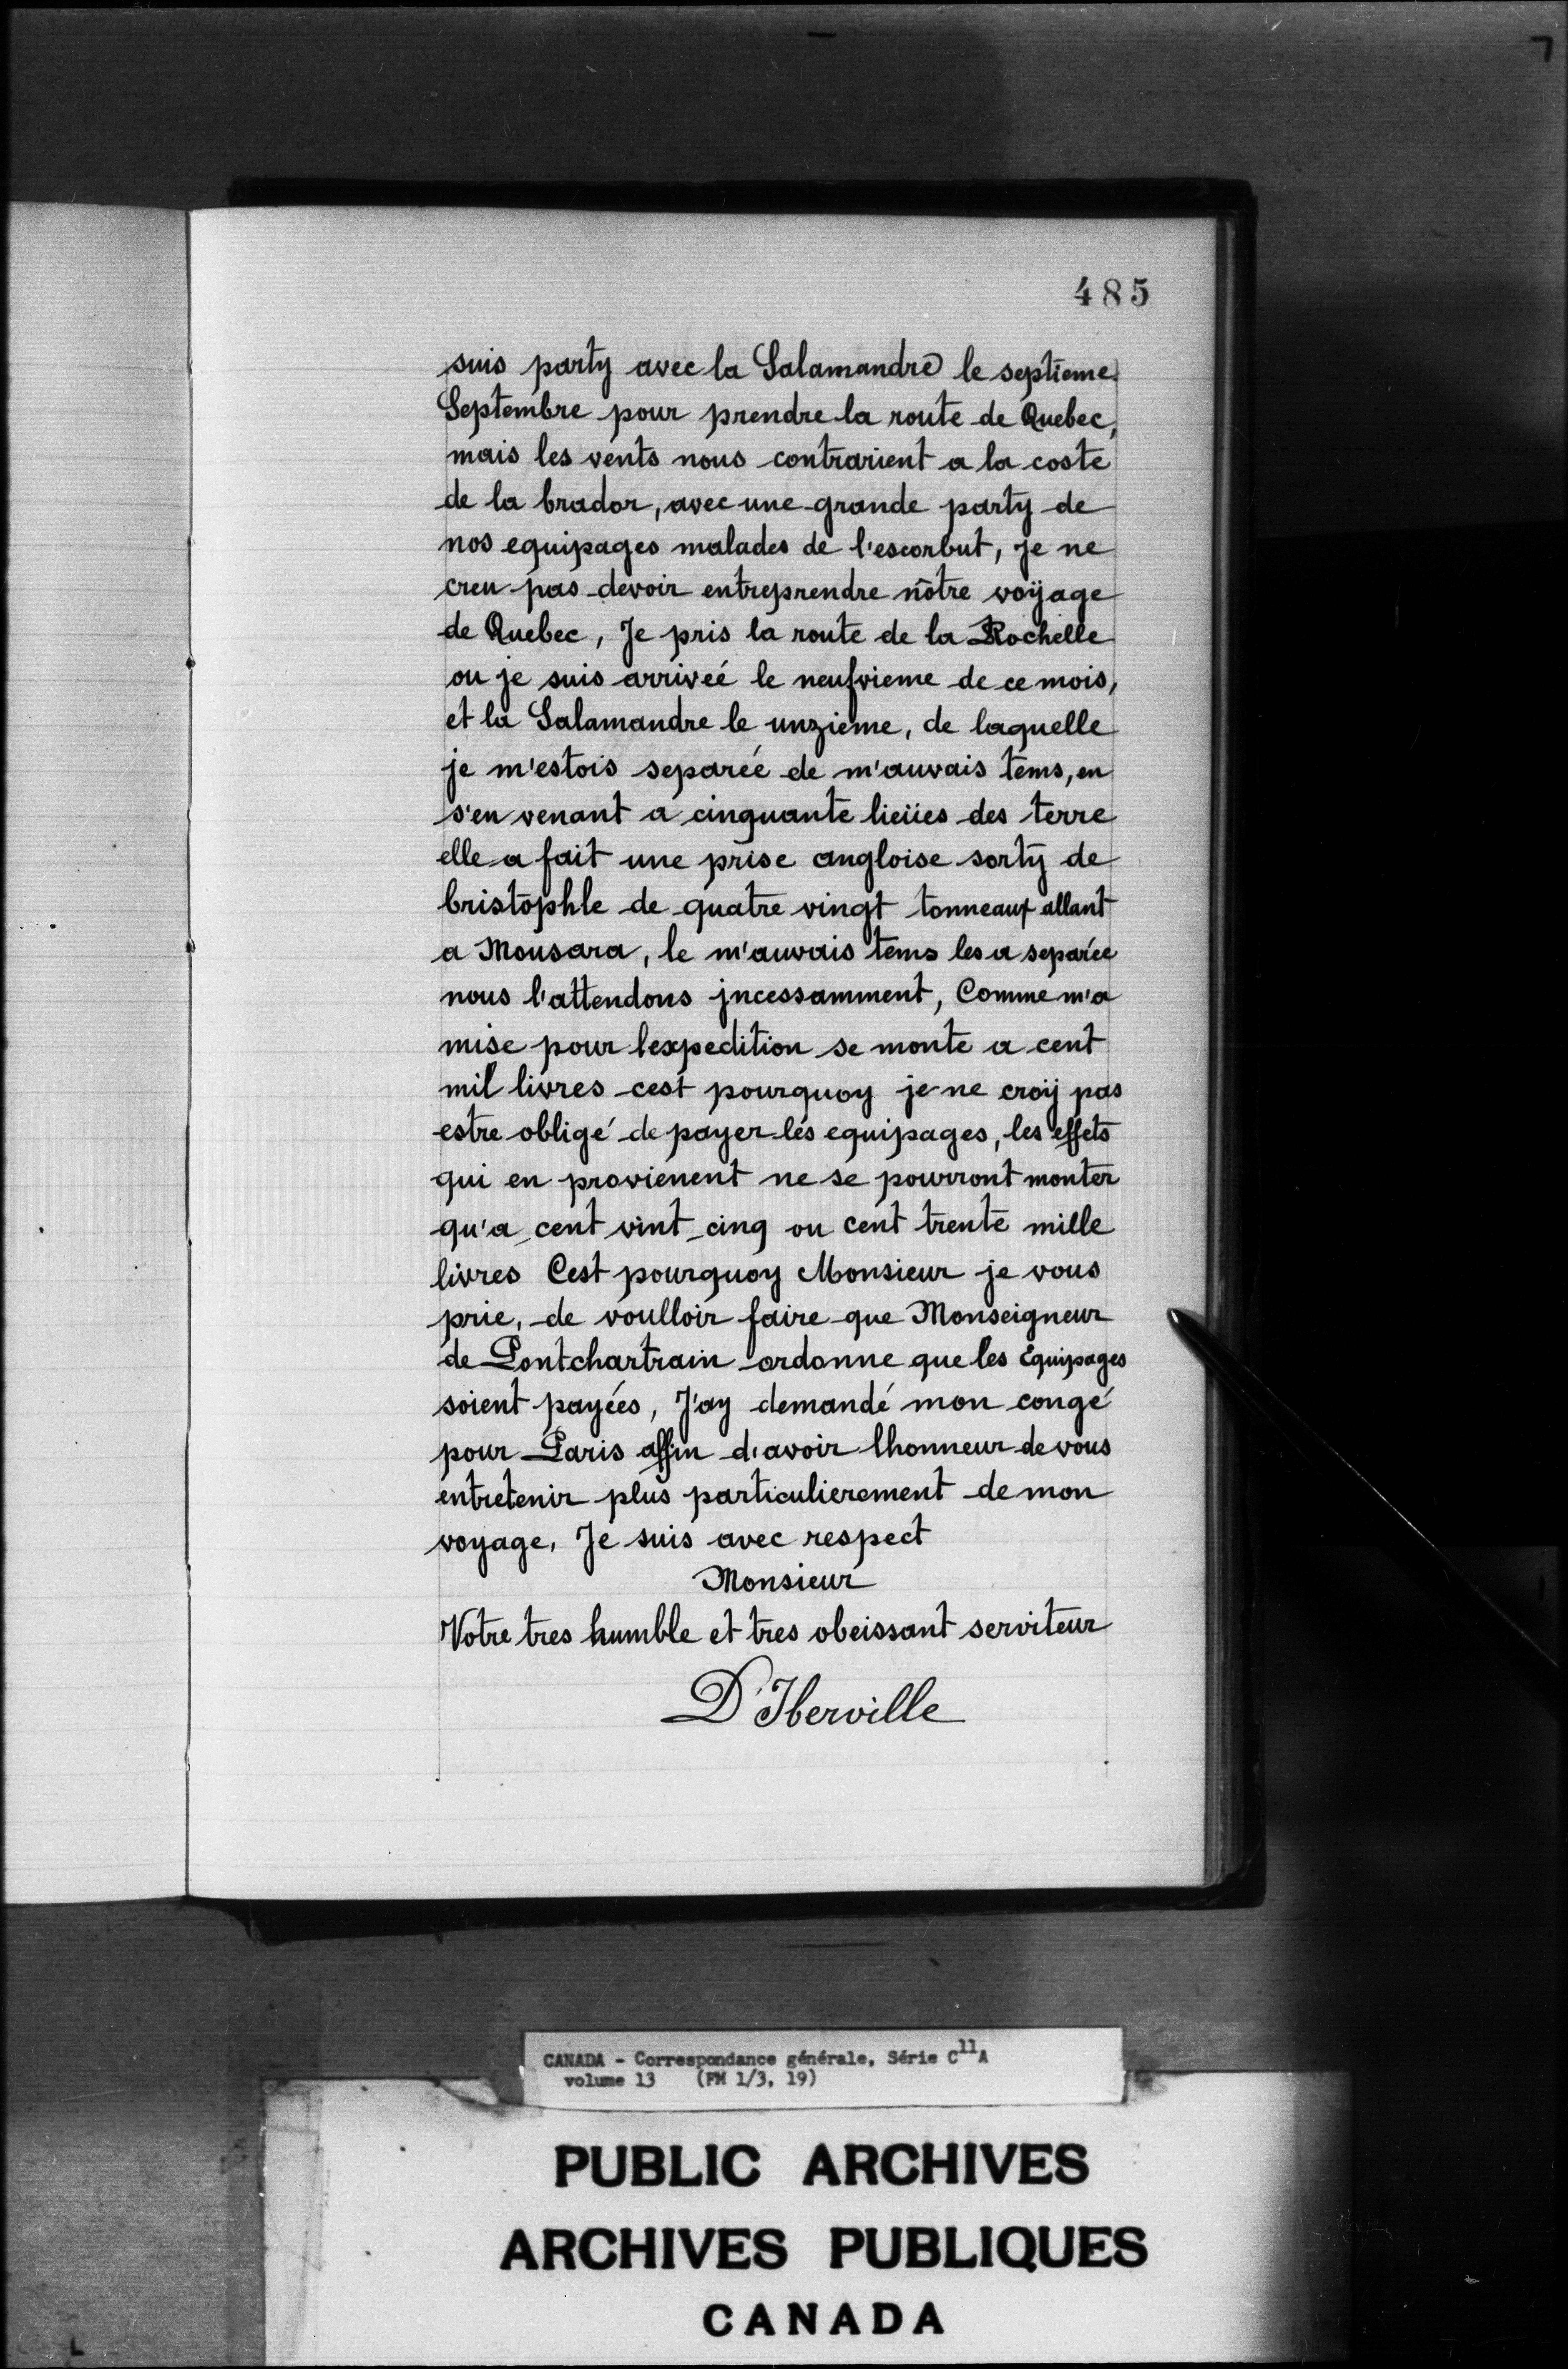 485
suis party avec la Salamandre le septieme
Septembre pour prendre la route de Quebec,
mais les vents nous contrarient a la coste
de la brador, avec une grande party de
nos equipages malades de l'escorbut, je ne
creu pas devoir entreprendre nôtre voÿage
de Quebec, Je pris la route de la Rochelle
ou je suis arriveé le neufvieme de ce mois,
et la Salamandre le unzieme, de laquelle
je m'estois separeé de m'auvais tems, en
s'en venant a cinquante lieües des terre
elle a fait une prise angloise sortÿ de
bristophle de quatre vingt tonneaux allant
a Mousara, le m'auvais tems les a separée
nous l'attendons jncessamment, Comme m'a
mise pour lexpedition se monte a cent
mil livres cest pourquoy je ne croÿ pas
estre obligé de payer les equipages, les effets
qui en provienent ne se pourront monter
qu'a cent vint cinq ou cent trente mille
livres Cest pourquoy Monsieur je vous
prie, de voulloir faire que Monseigneur
de Pontchartrain ordonne que les Equipages
soient payées, J'ay demandé mon congé
pour Paris affin d'avoir lhonneur de vous
entretenir plus particulierement de mon
voyage, Je suis avec respect
Monsieur
Votre tres humble et tres obeissant serviteur
D'Iberville
CANADA - Correspondance générale, Série C11A
volume 13 (FM 1/3, 19)
PUBLIC ARCHIVES
ARCHIVES PUBLIQUES
CANADA